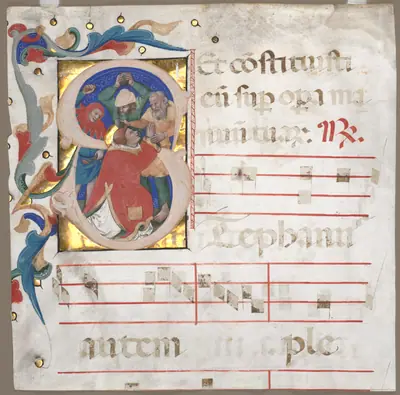 Et cōstituisti
eū sup opa ma
nuum tuaꝝ: ℟.
Stephanu
autem ple